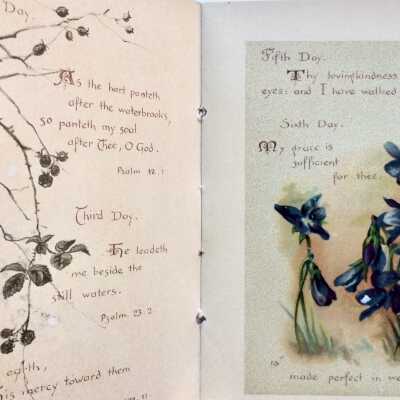 Day.
As the hart panteth
after the waterbrooks,
so panteth my soul
after Thee, O God.
Psalm 42. 1
Third Day.
He leadeth
me beside the
still waters.
Psalm 23. 2
earth,
his mercy toward them
11.
Fifth Day.
Thy lovingkindness
eyes: and I have walked
Sixth Day.
My grace is
sufficient
for thee,
made perfect in we